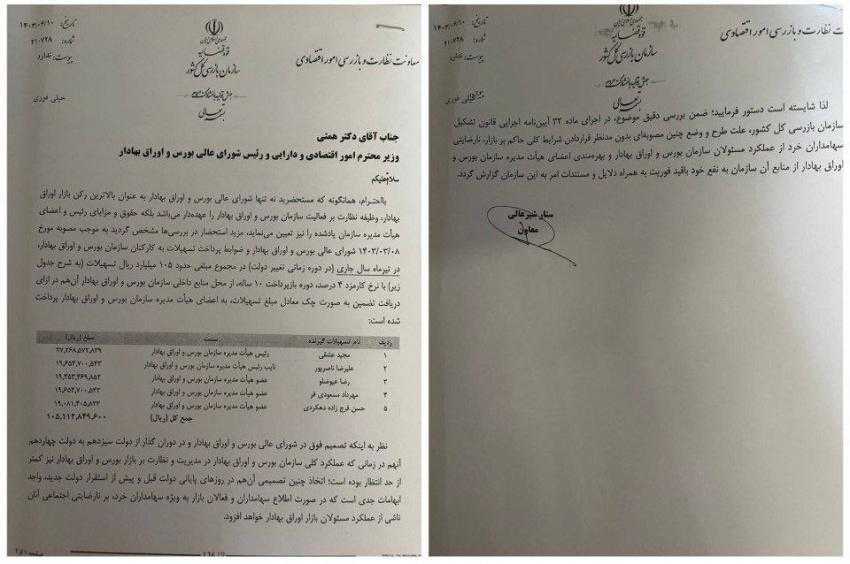 تاریخ: ۱۴۰۳/۰۶/۱۰
شماره: ۲۱۰۷۲۸
پیوست: ندارد
جمهوری اسلامی ایران
قوه قضائیه
سازمان بازرسی کل کشور
معاونت نظارت و بازرسی امور اقتصادی
بسمه تعالی
خیلی فوری
جناب آقای دکتر همتی
وزیر محترم امور اقتصادی و دارایی و رئیس شورای عالی بورس و اوراق بهادار
سلام علیکم
بااحترام، همانگونه که مستحضرید نه تنها شورای عالی بورس و اوراق بهادار به عنوان بالاترین رکن بازار اوراق
بهادار، وظیفه نظارت بر فعالیت سازمان بورس و اوراق بهادار را عهده‌دار می‌باشد بلکه حقوق و مزایای رئیس و اعضای
هیأت مدیره سازمان یادشده را نیز تعیین می‌نماید، مزید استحضار در بررسی‌ها مشخص گردید به موجب مصوبه مورخ
۱۴۰۳/۰۳/۰۸ شورای عالی بورس و اوراق بهادار و ضوابط پرداخت تسهیلات به کارکنان سازمان بورس و اوراق بهادار،
در تیرماه سال جاری (در دوره زمانی تغییر دولت) در مجموع مبلغی حدود ۱۰۵ میلیارد ریال تسهیلات (به شرح جدول
زیر) با نرخ کارمزد ۴ درصد، دوره بازپرداخت ۱۰ ساله، از محل منابع داخلی سازمان بورس و اوراق بهادار آن‌هم در ازای
دریافت تضمین به صورت چک معادل مبلغ تسهیلات، به اعضای هیأت مدیره سازمان بورس و اوراق بهادار پرداخت
شده است:
ردیف نام تسهیلات گیرنده سمت مبلغ (ریال)
۱ مجید عشقی رئیس هیأت مدیره سازمان بورس و اوراق بهادار ۲۷,۲۶۸,۵۷۲,۸۳۹
۲ علیرضا ناصرپور نایب رئیس هیأت مدیره سازمان بورس و اوراق بهادار ۱۹,۶۵۴,۷۰۰,۵۴۳
۳ رضا عیوضلو عضو هیأت مدیره سازمان بورس و اوراق بهادار ۱۹,۴۵۳,۴۶۹,۸۵۲
۴ مهرداد مسعودی فر عضو هیأت مدیره سازمان بورس و اوراق بهادار ۱۹,۶۵۴,۷۰۰,۵۴۳
۵ حسن فرج زاده دهکردی عضو هیأت مدیره سازمان بورس و اوراق بهادار ۱۹,۰۸۱,۴۰۵,۸۲۳
جمع کل (ریال) ۱۰۵,۱۱۲,۸۴۹,۶۰۰
نظر به اینکه تصمیم فوق در شورای عالی بورس و اوراق بهادار و در دوران گذار از دولت سیزدهم به دولت چهاردهم
آنهم در زمانی که عملکرد کلی سازمان بورس و اوراق بهادار در مدیریت و نظارت بر بازار بورس و اوراق بهادار نیز کمتر
از حد انتظار بوده است؛ اتخاذ چنین تصمیمی آن‌هم در روزهای پایانی دولت قبل و پیش از استقرار دولت جدید، واجد
ابهامات جدی است که در صورت اطلاع سهامداران و فعالان بازار به ویژه سهامداران خرد، بر نارضایتی اجتماعی آنان
ناشی از عملکرد مسئولان بازار اوراق بهادار خواهد افزود.
تاریخ: ۱۴۰۳/۰۶/۱۰
شماره: ۲۱۰۷۲۸
پیوست:
جمهوری اسلامی ایران
قوه قضائیه
سازمان بازرسی کل کشور
ت نظارت و بازرسی امور اقتصادی
بسمه تعالی
خیلی فوری
لذا شایسته است دستور فرمایید؛ ضمن بررسی دقیق موضوع، در اجرای ماده ۳۲ آیین‌نامه اجرایی قانون تشکیل
سازمان بازرسی کل کشور، علت طرح و وضع چنین مصوبه‌ای بدون مدنظر قراردادن شرایط کلی حاکم بر بازار، نارضایتی
سهامداران خرد از عملکرد مسئولان سازمان بورس و اوراق بهادار و بهره‌مندی اعضای هیأت مدیره سازمان بورس و
اوراق بهادار از منابع آن سازمان به نفع خود باقید فوریت به همراه دلایل و مستندات امر به این سازمان گزارش گردد.
معاون